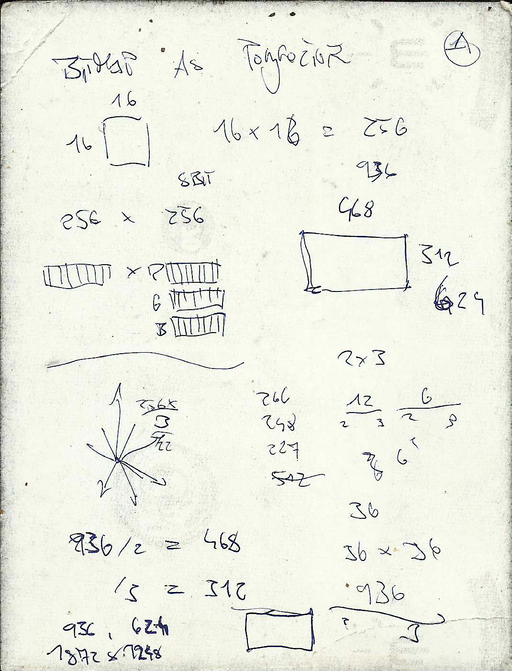 BITMAP AS
A
16
16
16 x 16 = 256
936
8BIT
468
256 x 256
312
x
G
B
624
2x3
256x
3
266
248
227
512
12
2 3
6
2
6
36
36 x 36
936/2 = 468
/3 = 312
936
2 3
936, 624
1872 x 1248